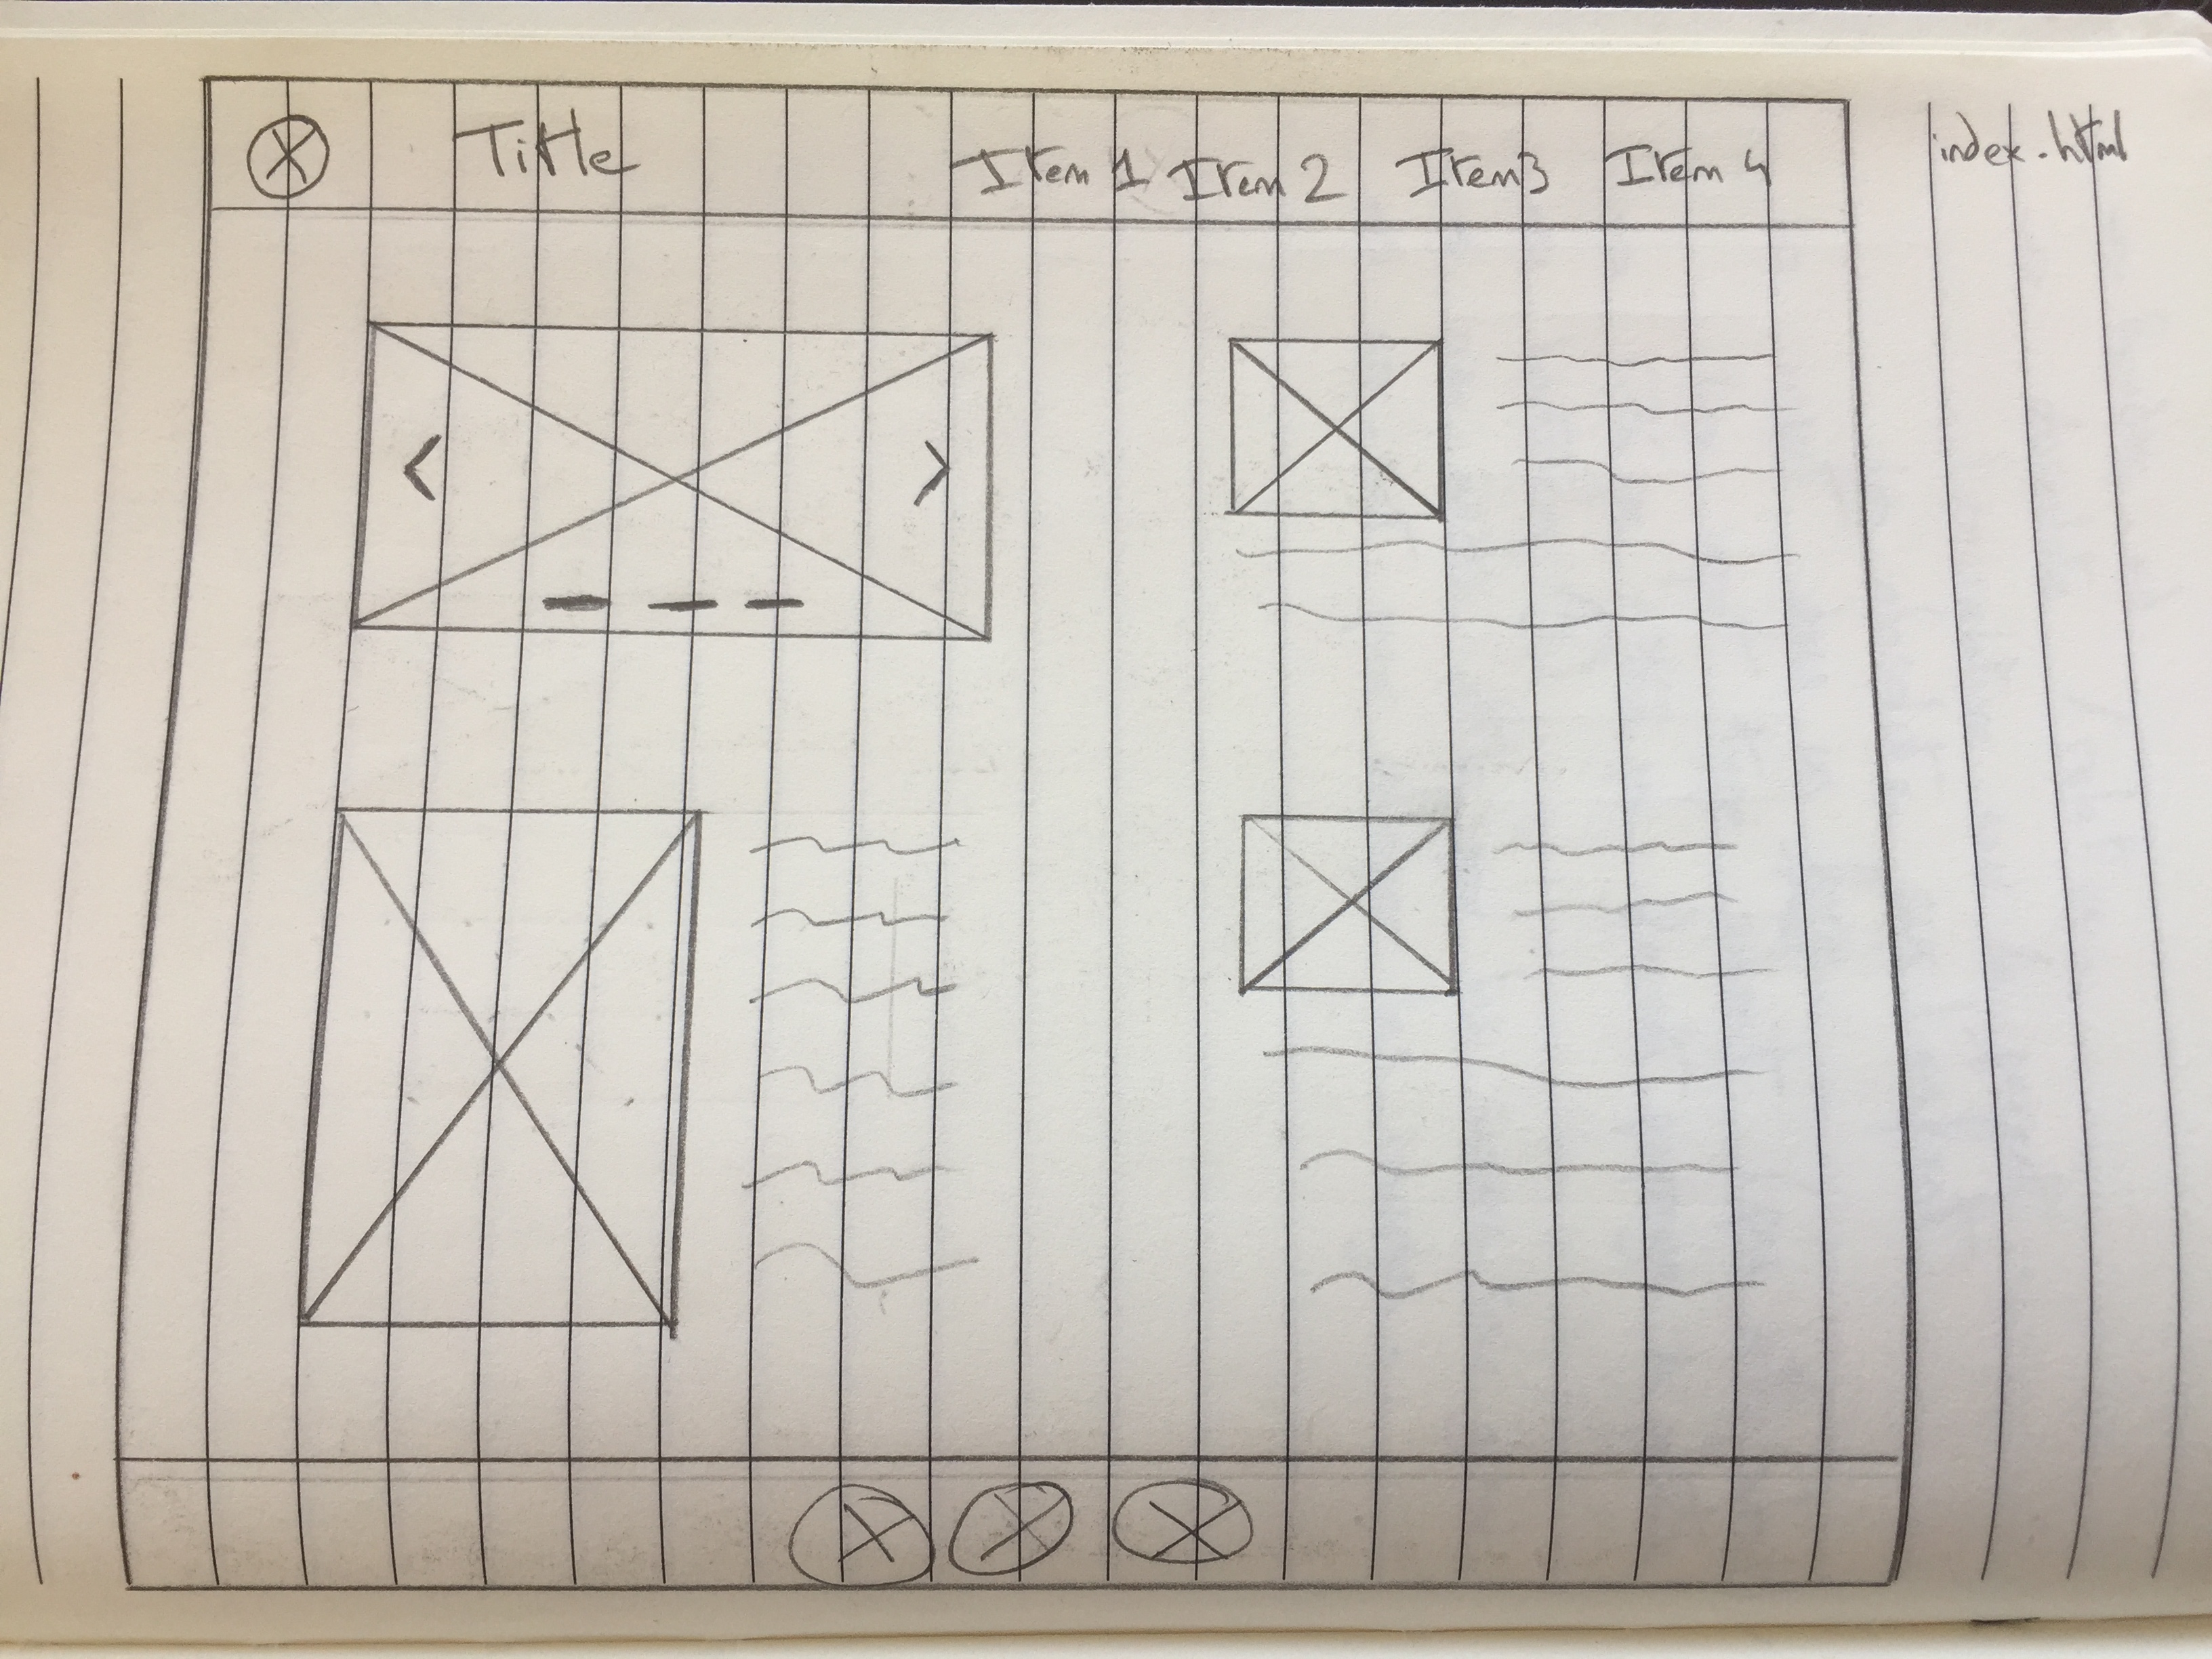 Title Item 1 Item 2 Item3 Item 4
index.html